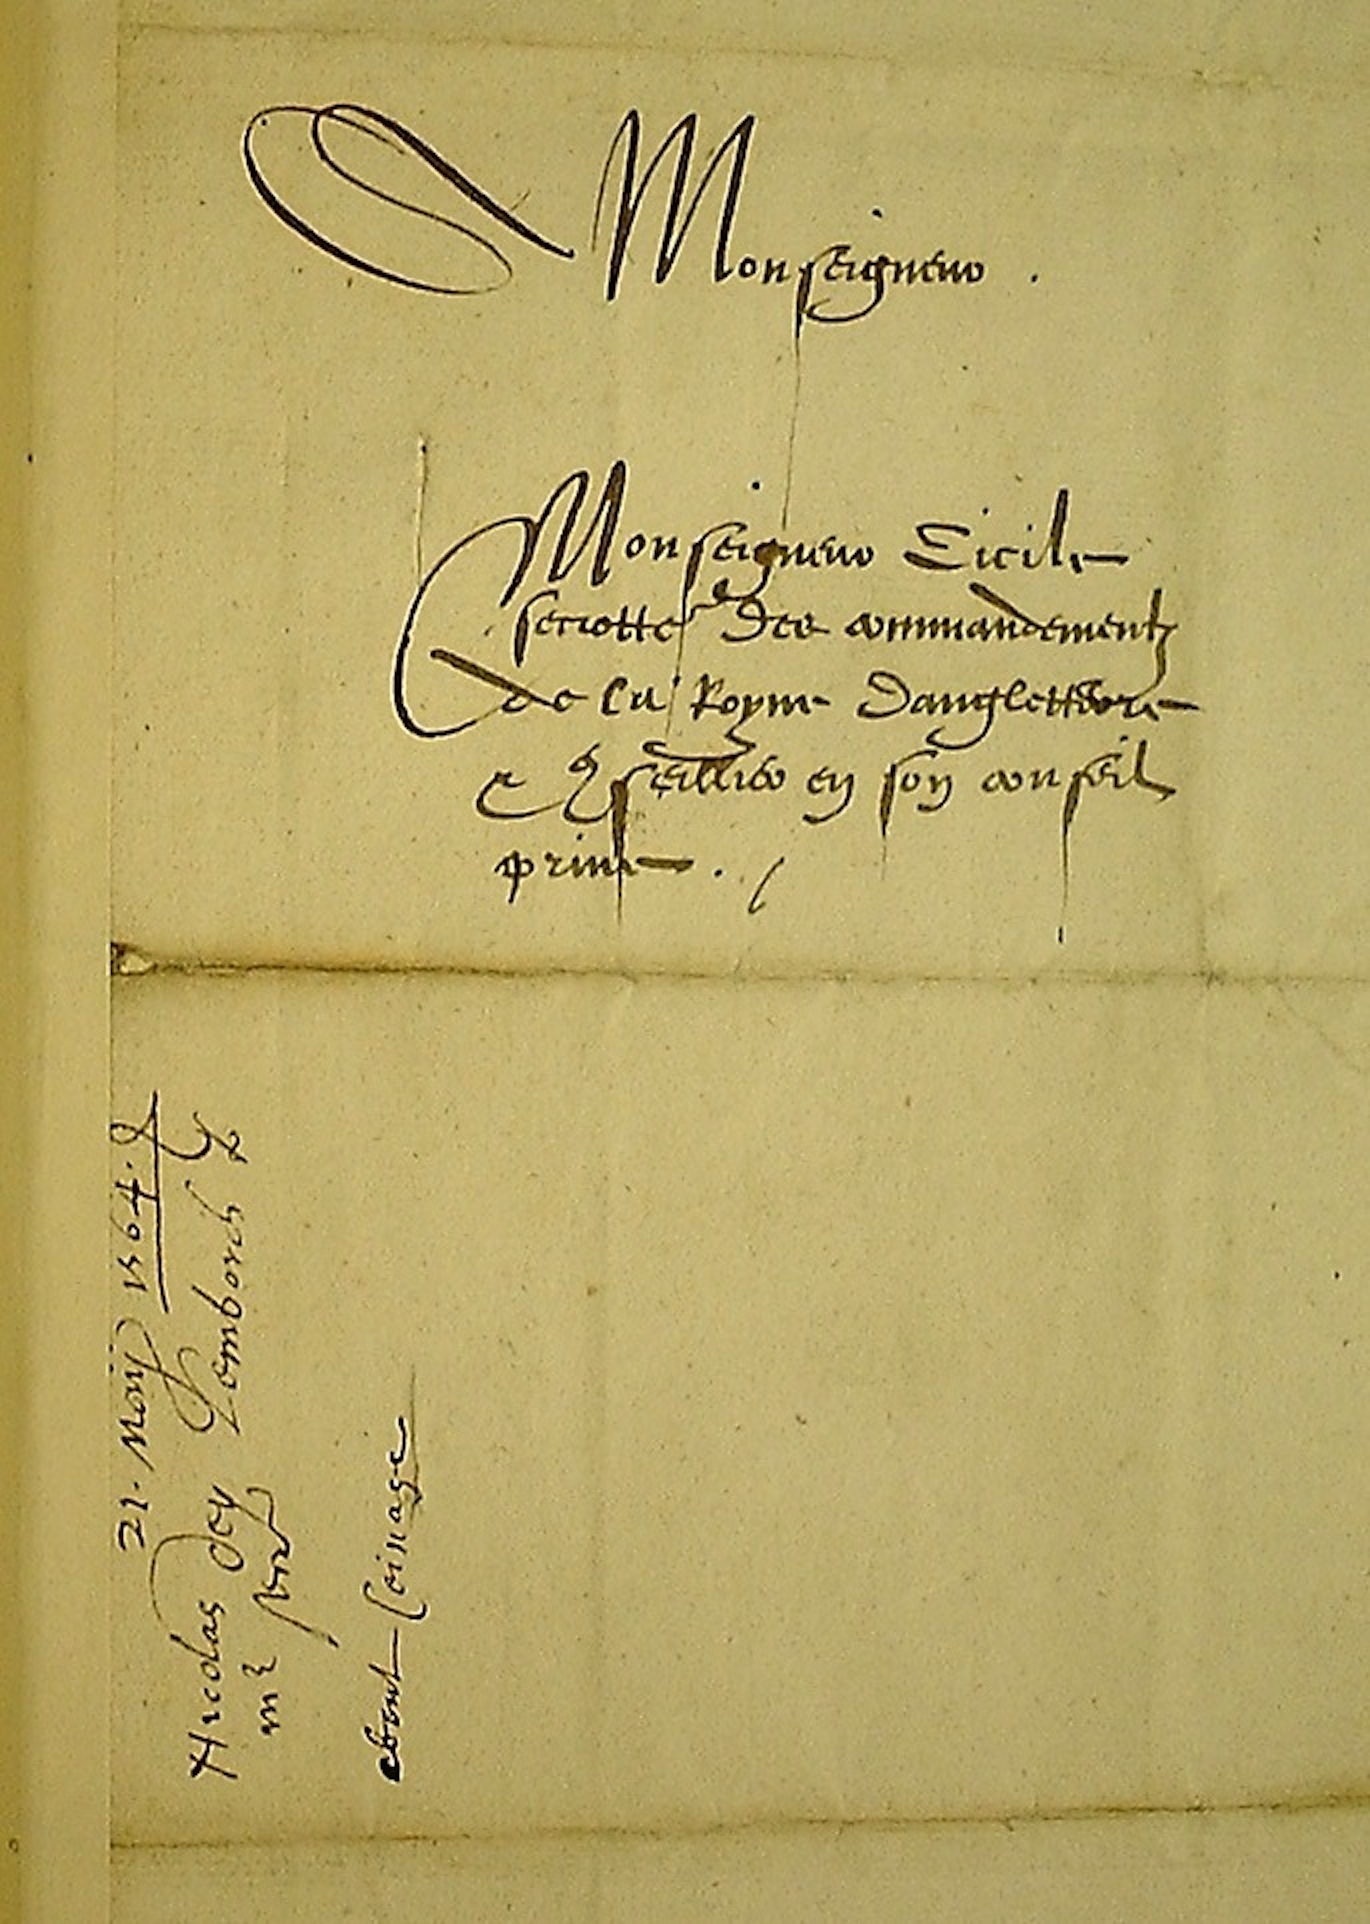 A Monseigneur .
Monseigneur Cicile
secrette des commandementz
de la Royne dangleterre
& Conseillier en son conseil
prive .
21. Maij 1564.
Nicolas dey Lombards
mr
about Coinage